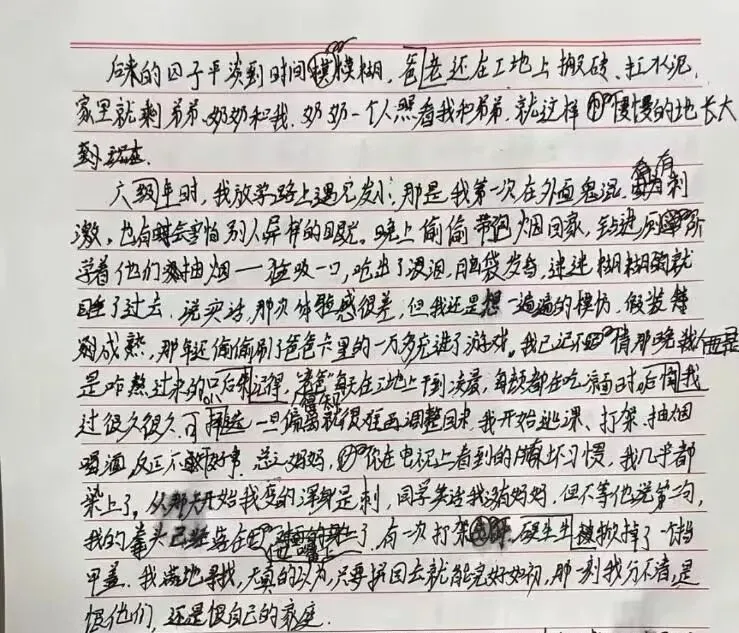 后来的日子平淡到时间模糊，爸老还在工地上搬砖、扛水泥，
家里就剩弟弟、奶奶和我，奶奶一个人照看我和弟弟，就这样慢慢的地长大
到现在.
六年级时，我放学路上遇见发小，那是我第一次在外面鬼混，有刺
激，也有时会害怕别人异样的眼光。晚上偷偷带包烟回家，钻进厕所
学着他们抽烟一一独吸一口，呛出了眼泪，脑袋发晕，迷迷糊糊就
睡了过去，说实话，那次体验感很差，但我还是想一遍遍的模仿，假装
成熟，那年还偷偷刷了爸爸卡里的一万多充进了游戏。我已记不清那晚我
是咋熬过来的只后来记得，"爸爸"每天在工地上干到凌晨，每顿都在吃，后悔我
过很久很久，可一旦偏离就很难再调整回来，我开始逃课、打架、抽烟
喝酒，反正不做好事，总之妈妈，你在电视上看到的所有坏习惯，我几乎都
染上了，从那天开始我变的浑身是刺，同学笑话我没有妈妈，但不等他说第二句，
我的拳头已经落在他嘴上了，有一次打架硬生生被掀掉了一个指
甲盖，我满地寻找，天真的以为，只要拼回去就能完好如初，那一刻我分不清，是
恨他们，还是恨自己的家庭.